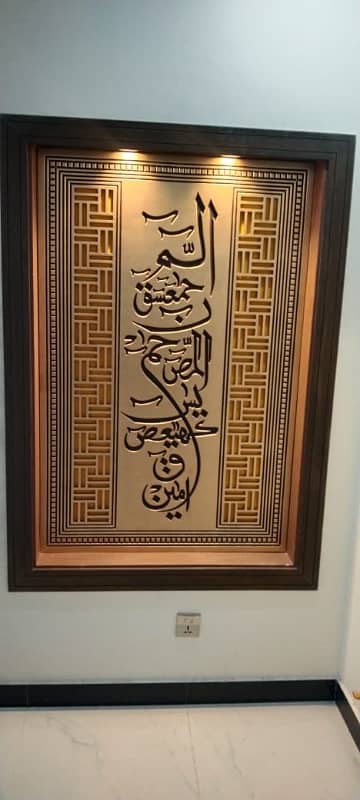 الٓمّ
حمعسق
ن
المّص حم
يس
كهيعص
ق
امين